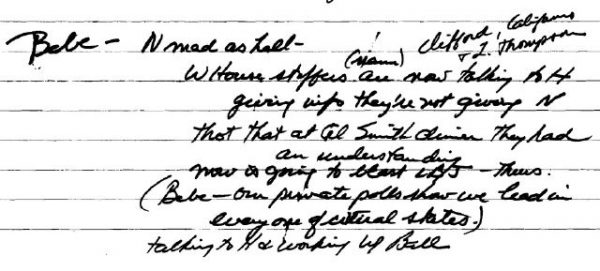 Clifford, Califano
Bebe – N mad as hell – (names) + L. Thompson
W House staffers are now talking to H
giving info they're not giving N
thot that at Al Smith dinner they had
an understanding
now is going to blast LBJ – Thurs.
(Bebe – our private polls show we lead in
every one of critical states.)
talking to H & working w/ Bell